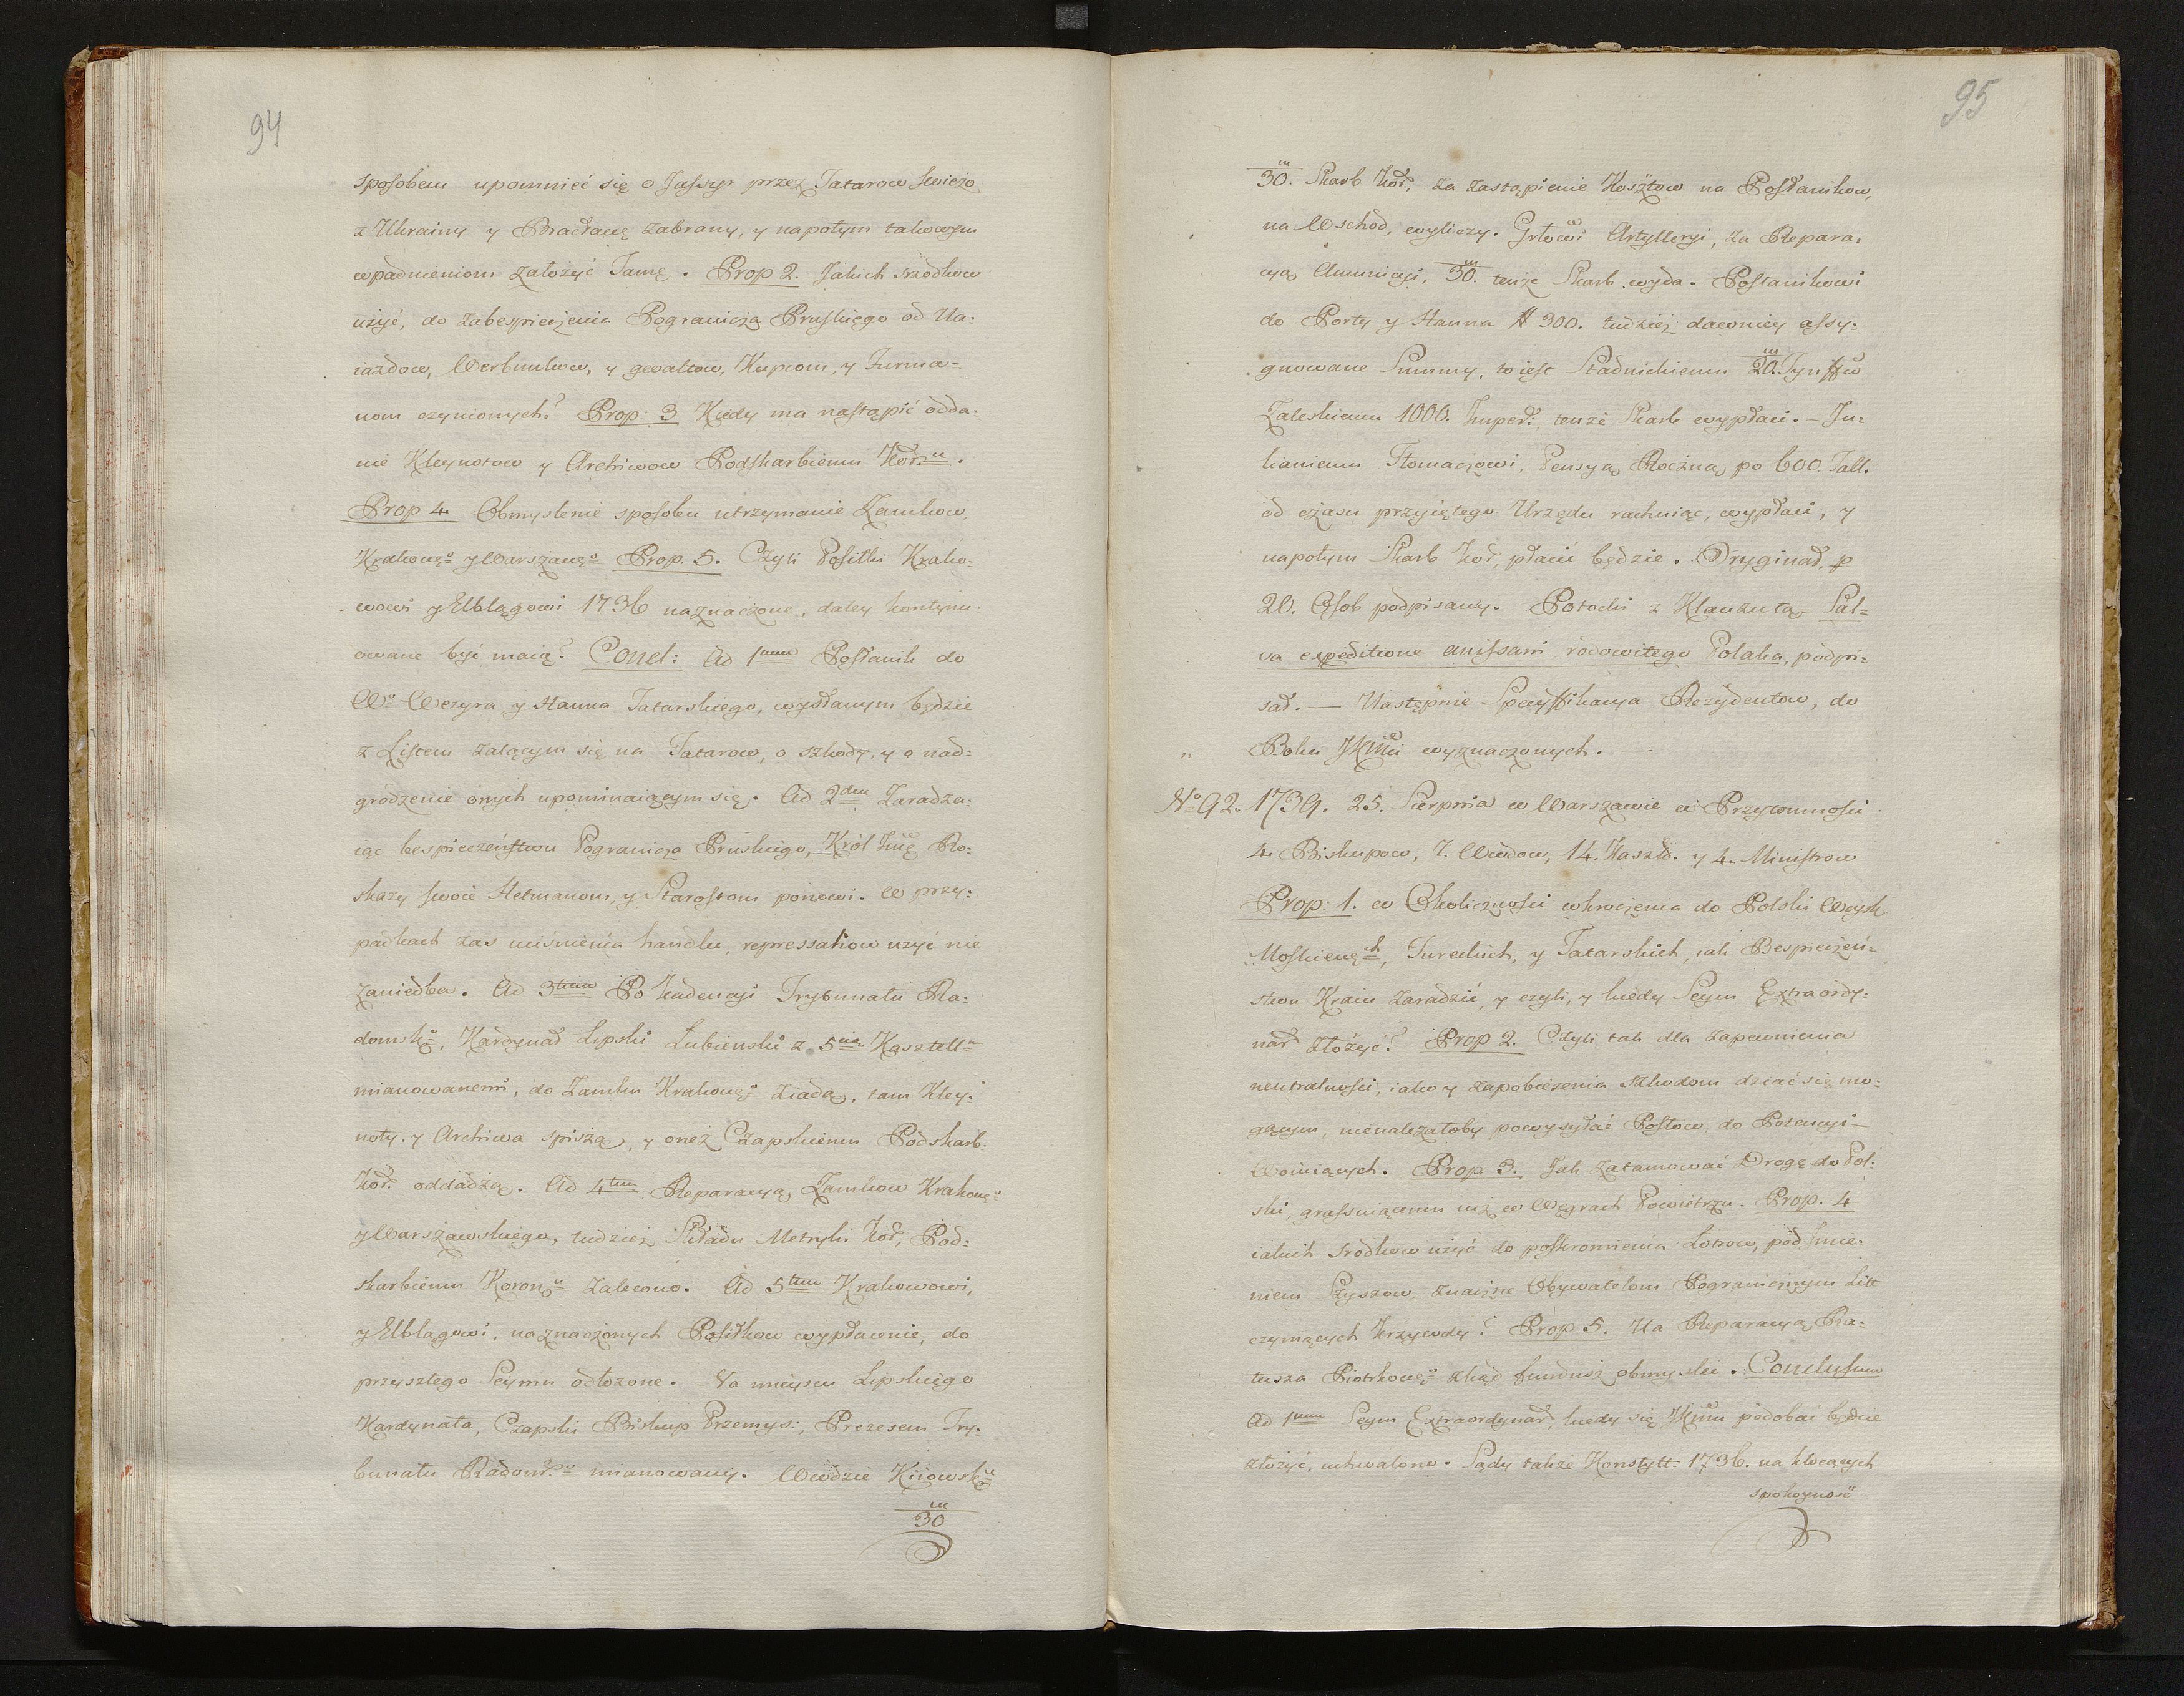 94
sposobem upomnieć się o Jassyr przez Tatarow swieżo
z Ukrainy y Bracławę zabrany, y napotym takowym
wpadnieniom założyć Tamę. Prop 2. Jakich srzodkow
użyć, do zabespieczenia Pogranicza Pruskiego od Na=
iazdow, Werbunkow, y gwałtow, Kupcom, y Furma=
nom czynionych? Prop: 3 Kiedy ma nastąpić odda=
nie Kleynotow y Archiwow Podskarbiemu Korn:u.
Prop 4 Obmyslenie sposobu utrzymanie Zamkow,
Krakowgo y Warszawgo Prop. 5. Czyli Posiłki Krako=
wowi y Elblągowi 1736 naznaczone, daley kontynu=
owane być maią? Concl: Ad 1mum Posłanik do
Wo Wezyra y Hanna Tatarskiego, wysłanym będzie
z Listem żalącym się na Tatarow, o szkody, y o nad=
grodzenie onych upominaiącym się. Ad 2dum Zaradza=
iąc bespieczeństwu Pogranicza Pruskiego, Król Jmć Ro=
skazy swoie Hetmanom, y Starostom ponowi. W przy=
padkach zas uciśnienia handlu, repressaliow użyć nie
zaniedba. Ad 3tium Po Kadencyi Trybunału Ra=
domsko, Kardynał Lipski Łubienski z 5cią Kasztell:
mianowanemi, do Zamku Krakowgo ziadą, tam Kley=
noty y Archiwa spiszą, y oneż Czapskiemu Podskarb.
Kor. oddadzą. Ad 4tum Reparacyą Zamkow Krakowgo
y Warszawskiego, tudzież Składu Metryki Kor, Pod=
skarbiemu Koronu zalecono. Ad 5tum Krakowowi,
y Elblągowi, naznaczonych Posiłkow wypłacenie, do
przyszłego Seymu odłożone. Na mieyscu Lipskiego
Kardynała, Czapski Biskup Przemys:, Prezesem Try=
bunału Radom: mianowany. Wwdzie Kiiowsku
m
30
95
m
30. Skarb Kor, za zastąpienie Kosztow na Posłanikow,
na Wschod, wyliczy. Grłowi Artylleryi, za Repara=
cyą Ammunicyi, 30.m tenże Skarb wyda. Posłanikowi
do Porty y Hanna # 300. tudzież dawniey assy=
gnowane Summy, to iest Stadnickiemu 20.m Tynffow
Zaleskiemu 1000. Imper:, tenże Skarb wypłaci. – Ju=
lianiemu Tłomaczowi, Pensyą Roczną po 600. Tall.
od czasu przyiętego Urzędu rachuiąc, wypłaci, y
napotym Skarb Kor, płacić będzie. Oryginał, p
20. Osob podpisany. Potocki z Klauzułą= Sal=
va expeditione anissarii rodowitego Polaka, podpi=
sał. — Następnie Specyffikacya Rezydentow, do
Boku JKMci wyznaczonych.
No 92. 1739. 25. Sierpnia w Warszawie w Przytomnosci
4. Biskupow, 7. Wwdow, 14. Kaszld. y 4. Ministrow
Prop: 1. w Okolicznosci wkroczenia do Polski Woysk
Moskiewsch, Tureckich, y Tatarskich, iak Bespieczeń=
stwu Kraiu zaradzić, y czyli, y kiedy Seym Extraordy=
nar złożyć? Prop 2. Czyli tak dla zapewnienia
neutralnosci, iako y zapobieżenia szkodom dziać się mo=
gącym, nienależałoby powysyłać Posłow, do Potencyi
Woiuiących. Prop 3. Jak zatamować Drogę do Pol=
ski, grassuiącemu iuż w Węgrach Powietrzu. Prop. 4
iakich srodkow użyć do poskromienia Łotrow, pod Imie=
niem Czyszow, znaczne Obywatelom Pogranicznym Litt
czyniących krzywdy? Prop 5. Na Reparacyą Ra=
tusza Piotrkowgo zkąd fundusz obmyslić. Conclusum
Ad 1mum Seym Extraordynar, kiedy się JKMci podobać będzie
złożyć, uchwalono. Sądy także Konstytt. 1736. na kłocących
spokoyność